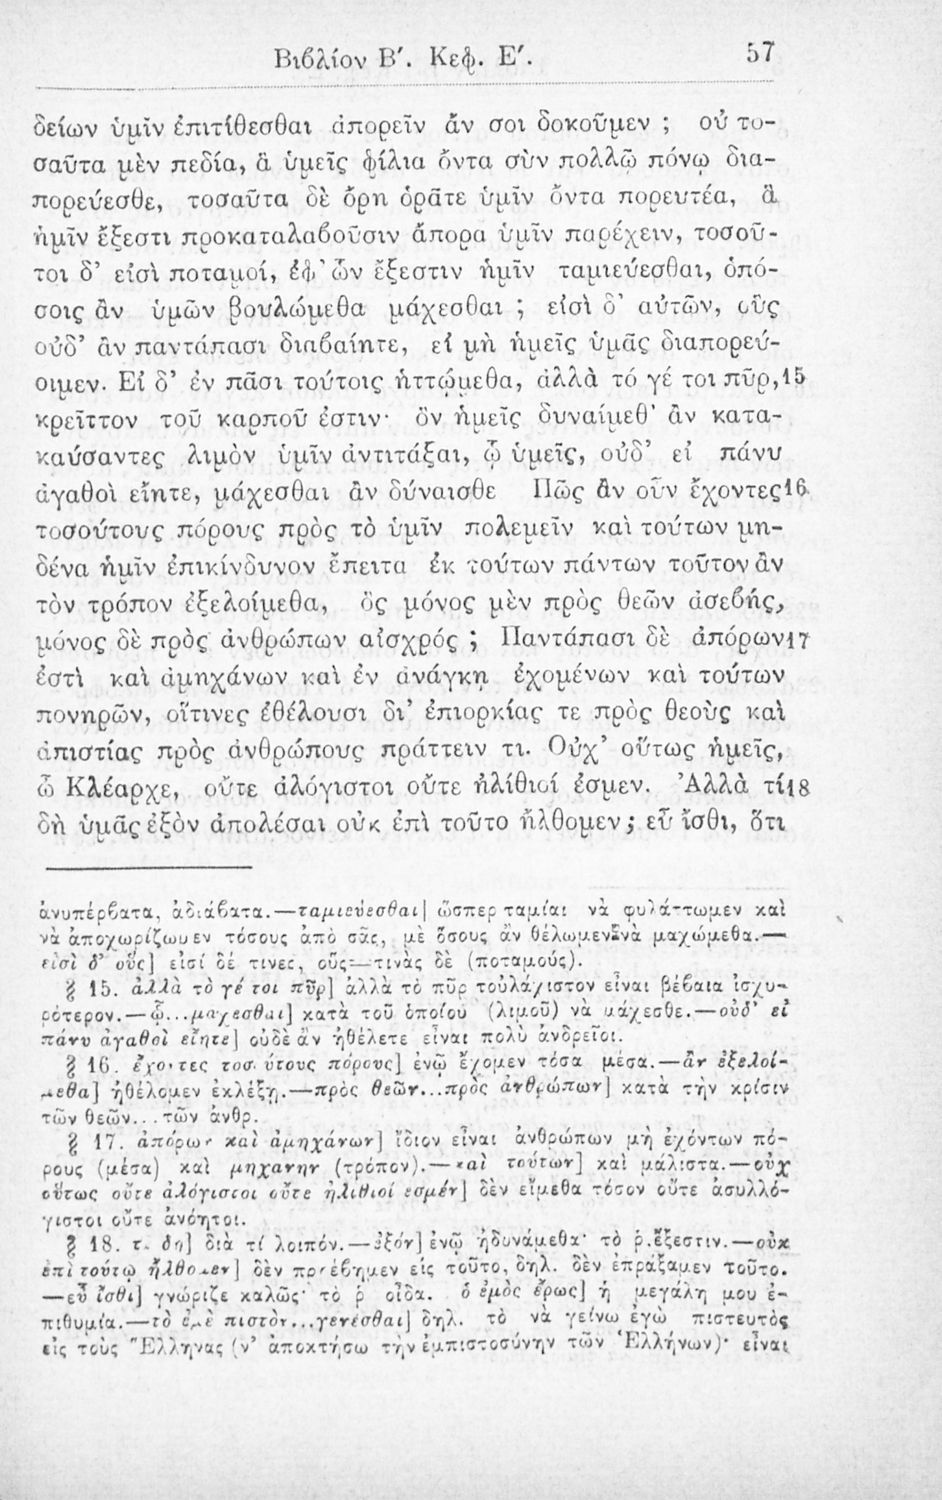 Βιβλίον Β′. Κεφ. Ε′.
57
δείων ὑμῖν ἐπιτίθεσθαι ἀπορεῖν ἄν σοι δοκοῦμεν ; οὐ το-
σαῦτα μὲν πεδία, ἃ ὑμεῖς φίλια ὄντα σὺν πολλῷ πόνῳ δια-
πορεύεσθε, τοσαῦτα δὲ ὄρη ὁρᾶτε ὑμῖν ὄντα πορευτέα, ἃ
ἡμῖν ἔξεστι προκαταλαβοῦσιν ἄπορα ὑμῖν παρέχειν, τοσοῦ-
τοι δ’ εἰσὶ ποταμοί, ἐφ’ ὧν ἔξεστιν ἡμῖν ταμιεύεσθαι, ὁπό-
σοις ἂν ὑμῶν βουλώμεθα μάχεσθαι ; εἰσὶ δ’ αὐτῶν, οὓς
οὐδ’ ἂν παντάπασι διαβαίητε, εἰ μὴ ἡμεῖς ὑμᾶς διαπορεύ-
οιμεν. Εἰ δ’ ἐν πᾶσι τούτοις ἡττῴμεθα, ἀλλὰ τό γέ τοι πῦρ, 15
κρεῖττον τοῦ καρποῦ ἐστιν· ὃν ἡμεῖς δυναίμεθ’ ἂν κατα-
καύσαντες λιμὸν ὑμῖν ἀντιτάξαι, ᾧ ὑμεῖς, οὐδ’ εἰ πάνυ
ἀγαθοὶ εἴητε, μάχεσθαι ἂν δύναισθε Πῶς ἂν οὖν ἔχοντες 16
τοσούτους πόρους πρὸς τὸ ὑμῖν πολεμεῖν καὶ τούτων μη-
δένα ἡμῖν ἐπικίνδυνον ἔπειτα ἐκ τούτων πάντων τοῦτον ἂν
τὸν τρόπον ἐξελοίμεθα, ὃς μόνος μὲν πρὸς θεῶν ἀσεβής,
μόνος δὲ πρὸς ἀνθρώπων αἰσχρός ; Παντάπασι δὲ ἀπόρων 17
ἐστὶ καὶ ἀμηχάνων καὶ ἐν ἀνάγκῃ ἐχομένων καὶ τούτων
πονηρῶν, οἵτινες ἐθέλουσι δι’ ἐπιορκίας τε πρὸς θεοὺς καὶ
ἀπιστίας πρὸς ἀνθρώπους πράττειν τι. Οὐχ’ οὕτως ἡμεῖς,
ὦ Κλέαρχε, οὔτε ἀλόγιστοι οὔτε ἠλίθιοί ἐσμεν. Ἀλλὰ τί 18
δὴ ὑμᾶς ἐξὸν ἀπολέσαι οὐκ ἐπὶ τοῦτο ἤλθομεν ; εὖ ἴσθι, ὅτι
ἀνυπέρβατα, ἀδιάβατα.—ταμιεύεσθαι] ὥσπερ ταμίαι νὰ φυλάττωμεν καὶ
νὰ ἀποχωρίζωμεν τόσους ἀπὸ σᾶς, μὲ ὅσους ἂν θέλωμεν νὰ μαχώμεθα.—
εἰσὶ δ’ οὓς] εἰσί δέ τινες, οὓς—τινὰς δὲ (ποταμούς).
§ 15. ἀλλὰ τὸ γέ τοι πῦρ] ἀλλὰ τὸ πῦρ τοὐλάχιστον εἶναι βέβαια ἰσχυ-
ρότερον.—ᾧ...μάχεσθαι] κατὰ τοῦ ὁποίου (λιμοῦ) νὰ μάχεσθε.—οὐδ’ εἰ
πάνυ ἀγαθοὶ εἴητε] οὐδὲ ἂν ἠθέλετε εἶναι πολὺ ἀνδρεῖοι.
§ 16. ἔχοντες τοσούτους πόρους] ἐνῷ ἔχομεν τόσα μέσα.—ἂν ἐξελοί-
μεθα] ἠθέλομεν ἐκλέξῃ.—πρὸς θεῶν...πρὸς ἀνθρώπων] κατὰ τὴν κρίσιν
τῶν θεῶν...τῶν ἀνθρ.
§ 17. ἀπόρων καὶ ἀμηχάνων] ἴδιον εἶναι ἀνθρώπων μὴ ἐχόντων πό-
ρους (μέσα) καὶ μηχανὴν (τρόπον).—καὶ τούτων] καὶ μάλιστα.—οὐχ
οὕτως οὔτε ἀλόγιστοι οὔτε ἠλίθιοί ἐσμέν] δὲν εἴμεθα τόσον οὔτε ἀσυλλό-
γιστοι οὔτε ἀνόητοι.
§ 18. τί δὴ] διὰ τί λοιπόν.—ἐξόν] ἐνῷ ἠδυνάμεθα· τὸ ῥ. ἔξεστιν.—οὐκ
ἐπὶ τούτῳ ἤλθομεν] δὲν προέβημεν εἰς τοῦτο, δηλ. δὲν ἐπράξαμεν τοῦτο.
—εὖ ἴσθι] γνώριζε καλῶς· τὸ ῥ οἶδα. ὁ ἐμὸς ἔρως] ἡ μεγάλη μου ἐ-
πιθυμία.—τὸ ἐμὲ πιστὸν...γενέσθαι] δηλ. τὸ νὰ γείνω ἐγὼ πιστευτὸς
εἰς τοὺς Ἕλληνας (ν’ ἀποκτήσω τὴν ἐμπιστοσύνην τῶν Ἑλλήνων)· εἶναι